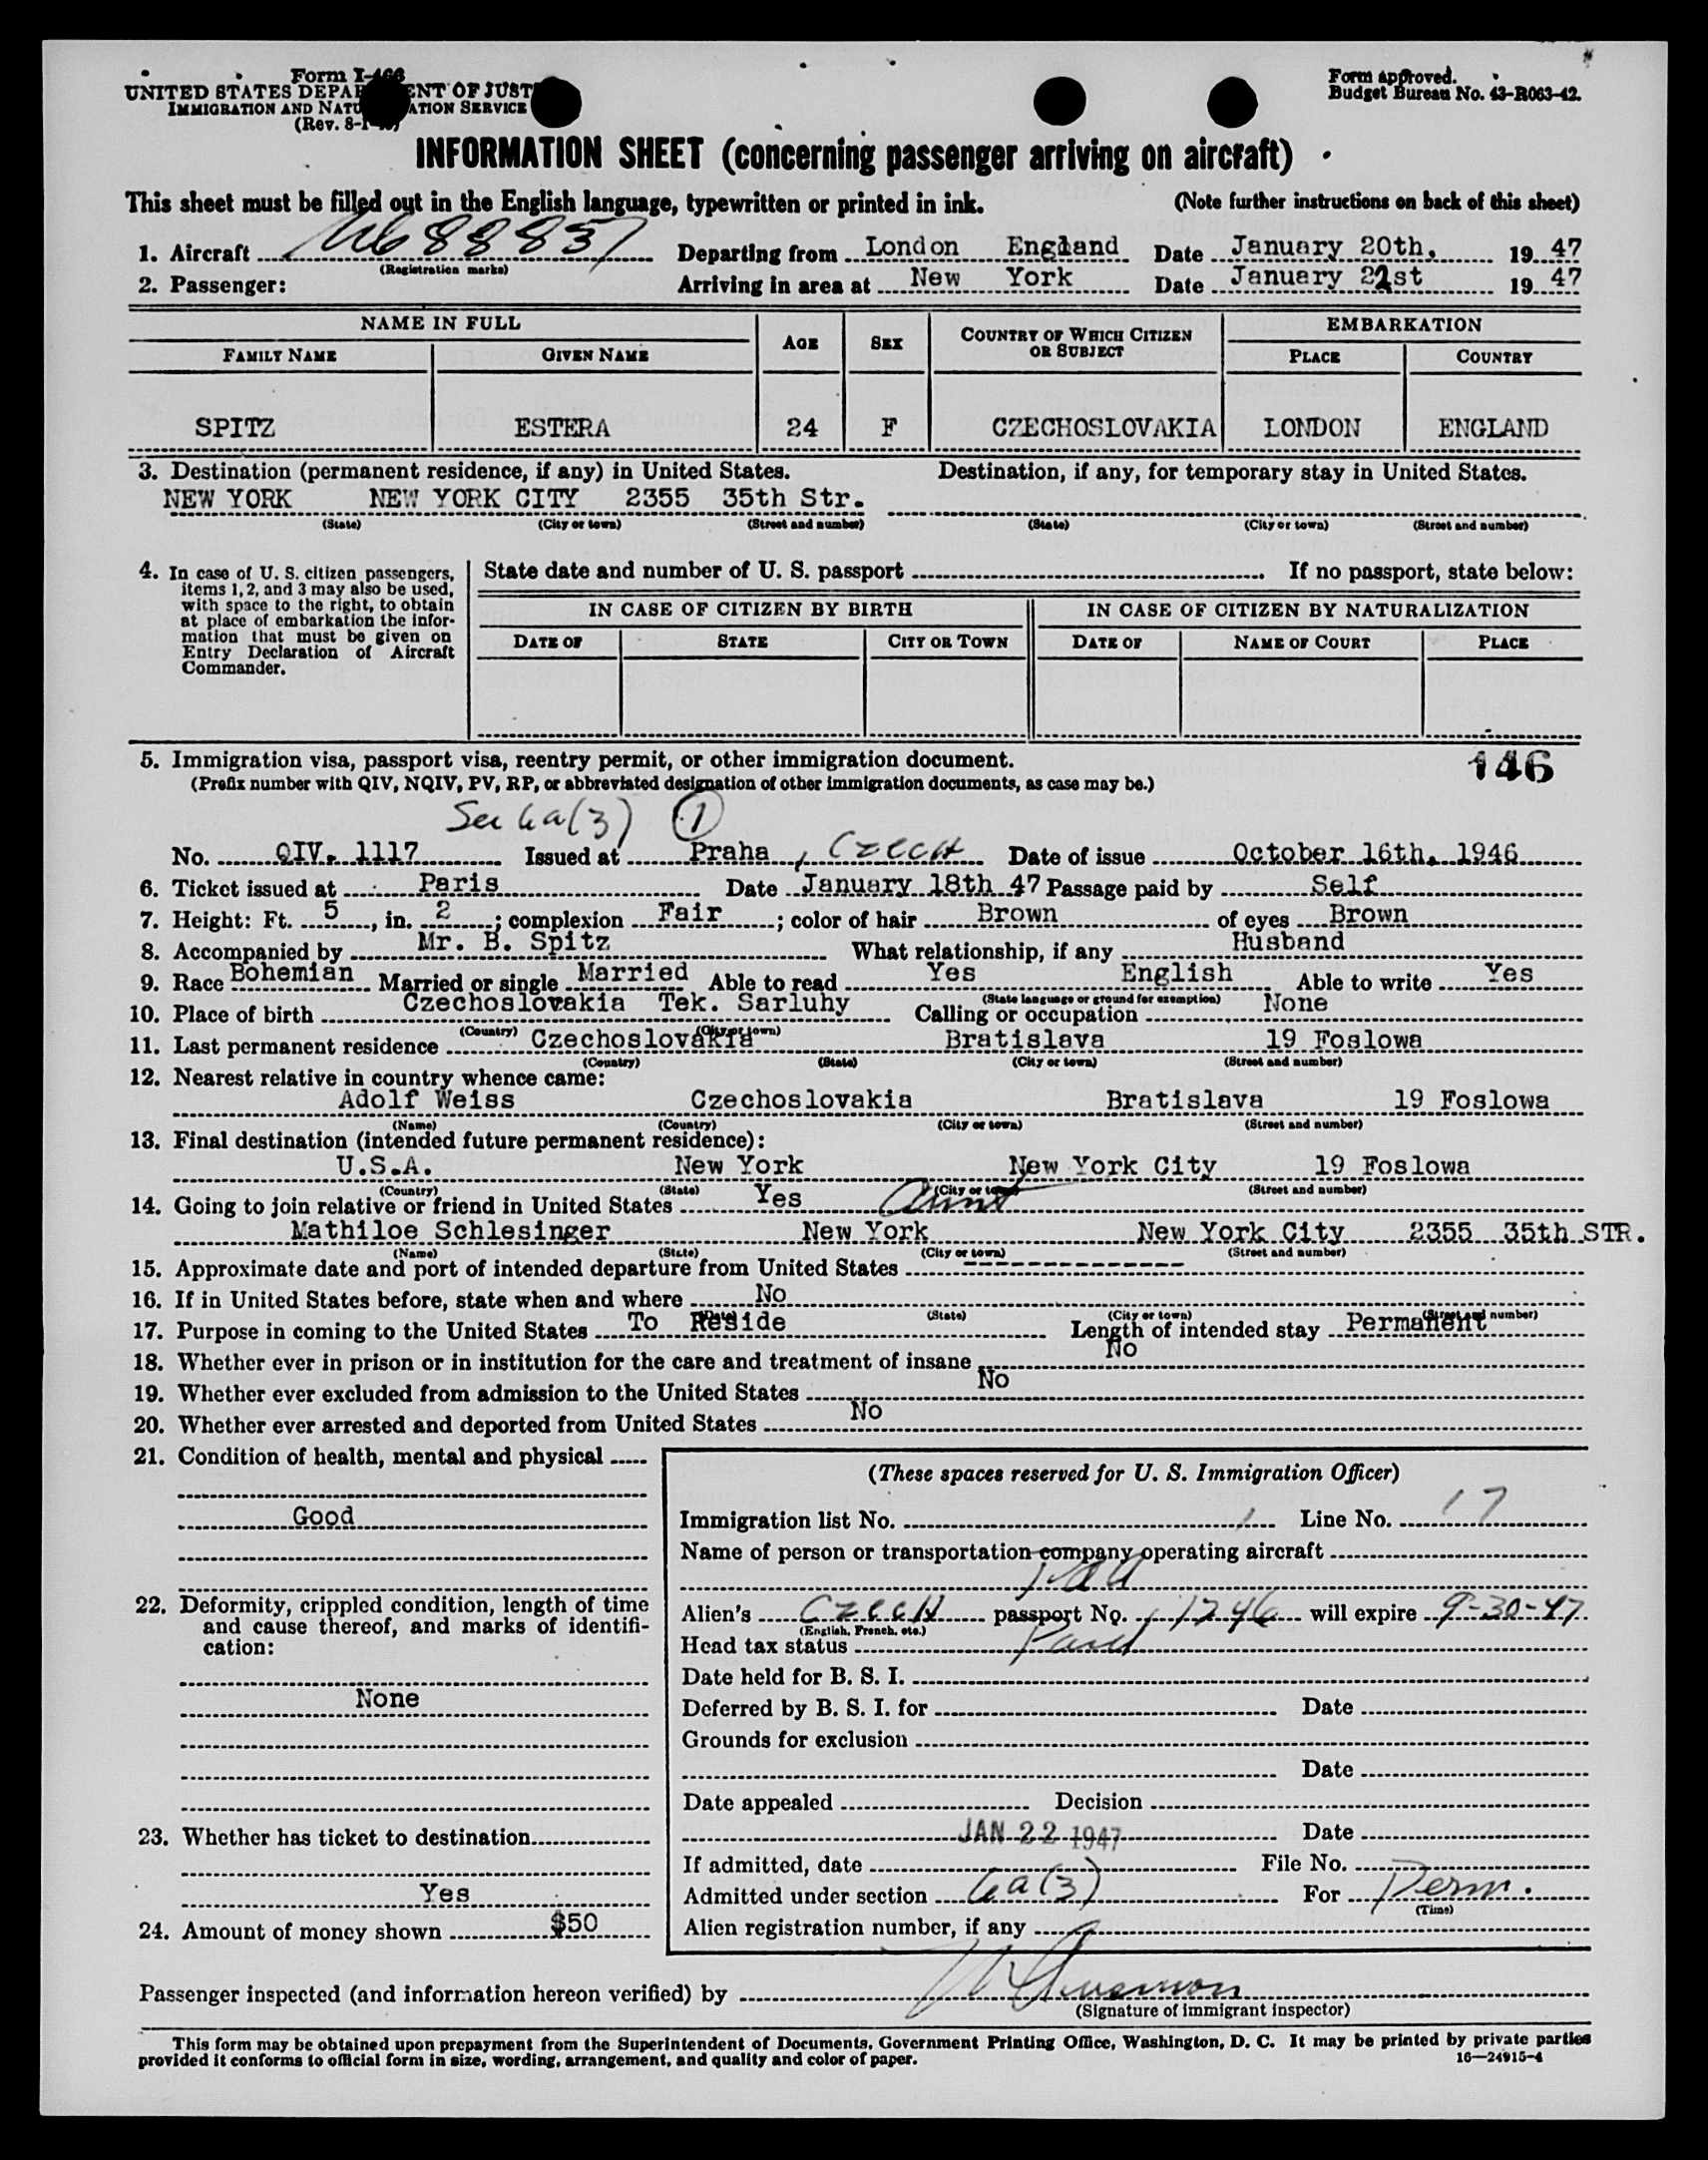 Form I-466
UNITED STATES DEPA ENT OF JUST
IMMIGRATION AND NATU ATION SERVICE
(Rev. 8-1-
Form approved.
Budget Bureau No. 43-R063-42.
INFORMATION SHEET (concerning passenger arriving on aircraft)
This sheet must be filled out in the English language, typewritten or printed in ink. (Note further instructions on back of this sheet)
1. Aircraft Departing from London England Date January 20th, 19 47
(Registration marks)
2. Passenger: Arriving in area at New York Date January 21st 19 47
NAME IN FULL AGE SEX COUNTRY OF WHICH CITIZEN OR SUBJECT EMBARKATION
FAMILY NAME GIVEN NAME PLACE COUNTRY
SPITZ ESTERA 24 F CZECHOSLOVAKIA LONDON ENGLAND
3. Destination (permanent residence, if any) in United States. Destination, if any, for temporary stay in United States.
NEW YORK NEW YORK CITY 2355 35th Str.
(State) (City or town) (Street and number) (State) (City or town) (Street and number)
4. In case of U. S. citizen passengers, items 1, 2, and 3 may also be used, with space to the right, to obtain at place of embarkation the information that must be given on Entry Declaration of Aircraft Commander.
State date and number of U. S. passport If no passport, state below:
IN CASE OF CITIZEN BY BIRTH IN CASE OF CITIZEN BY NATURALIZATION
DATE OF STATE CITY OR TOWN DATE OF NAME OF COURT PLACE
5. Immigration visa, passport visa, reentry permit, or other immigration document. 146
(Prefix number with QIV, NQIV, PV, RP, or abbreviated designation of other immigration documents, as case may be.)
Sec 6a(3) 1
No. QIV. 1117 Issued at Praha, Czech Date of issue October 16th, 1946
6. Ticket issued at Paris Date January 18th 47 Passage paid by Self
7. Height: Ft. 5, in. 2; complexion Fair; color of hair Brown of eyes Brown
8. Accompanied by Mr. B. Spitz What relationship, if any Husband
9. Race Bohemian Married or single Married Able to read Yes English Able to write Yes
(State language or ground for exemption)
10. Place of birth Czechoslovakia Tek. Sarluhy Calling or occupation None
(Country) (City or town)
11. Last permanent residence Czechoslovakia Bratislava 19 Foslowa
(Country) (State) (City or town) (Street and number)
12. Nearest relative in country whence came:
Adolf Weiss Czechoslovakia Bratislava 19 Foslowa
(Name) (Country) (City or town) (Street and number)
13. Final destination (intended future permanent residence):
U.S.A. New York New York City 19 Foslowa
(Country) (State) (City or town) (Street and number)
14. Going to join relative or friend in United States Yes Aunt
Mathiloe Schlesinger New York New York City 2355 35th STR.
(Name) (State) (City or town) (Street and number)
15. Approximate date and port of intended departure from United States ----------------
16. If in United States before, state when and where No
(Date) (State) (City or town) (Street and number)
17. Purpose in coming to the United States To Reside Length of intended stay Permanent
18. Whether ever in prison or in institution for the care and treatment of insane No
19. Whether ever excluded from admission to the United States No
20. Whether ever arrested and deported from United States No
21. Condition of health, mental and physical
Good
22. Deformity, crippled condition, length of time and cause thereof, and marks of identification:
None
23. Whether has ticket to destination
Yes
24. Amount of money shown $50
(These spaces reserved for U. S. Immigration Officer)
Immigration list No. 1 Line No. 17
Name of person or transportation company operating aircraft
Alien's Czech passport No. 1746 will expire 9-30-47
(English, French, etc.)
Head tax status Paid
Date held for B. S. I.
Deferred by B. S. I. for Date
Grounds for exclusion
Date
Date appealed Decision
JAN 22 1947 Date
If admitted, date File No.
Admitted under section 6a(3) For Perm.
(Time)
Alien registration number, if any
Passenger inspected (and information hereon verified) by
(Signature of immigrant inspector)
This form may be obtained upon prepayment from the Superintendent of Documents, Government Printing Office, Washington, D. C. It may be printed by private parties
provided it conforms to official form in size, wording, arrangement, and quality and color of paper. 16—24915-4